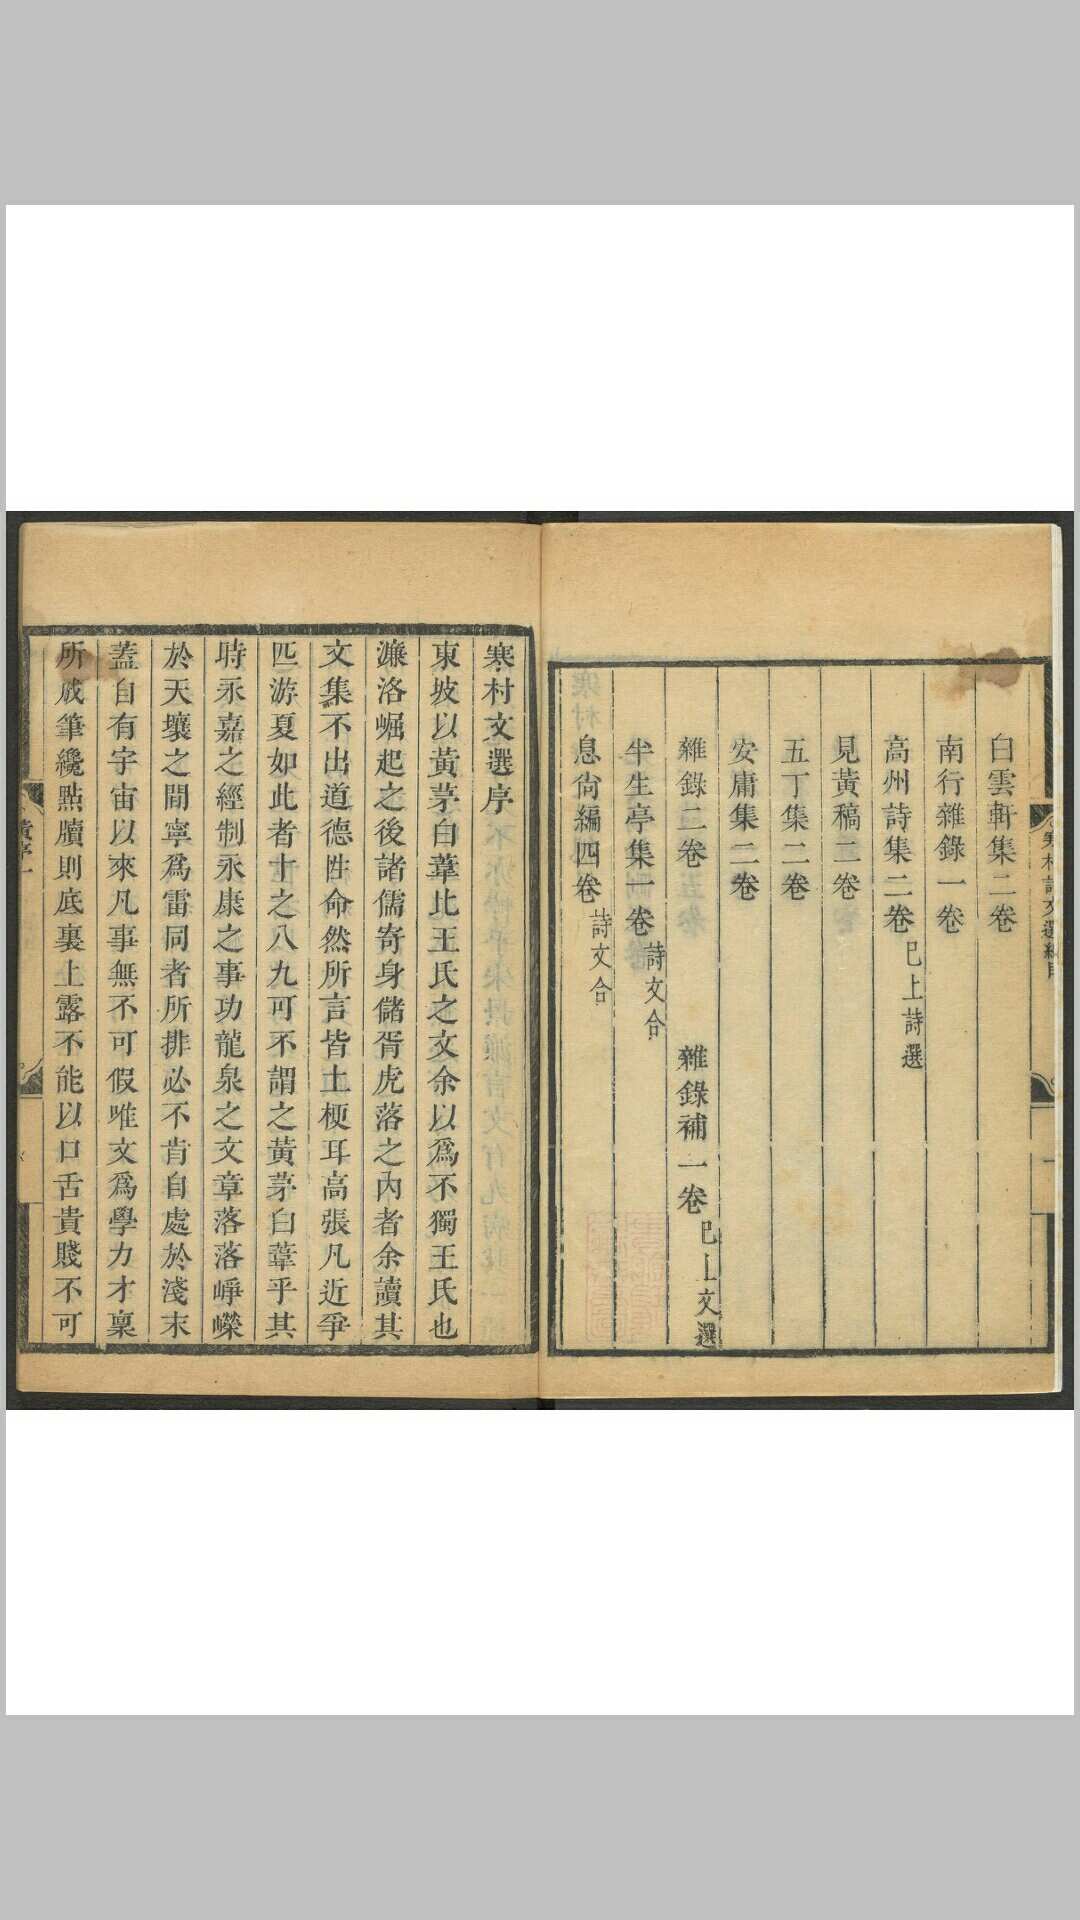 白雲軒集二卷
南行雜錄一卷
高州詩集二卷 已上詩選
見黃稿二卷
五丁集二卷
安庸集二卷
雜錄二卷 雜錄補一卷 已上文選
半生亭集一卷 詩文合
息尚編四卷 詩文合
寒村文選序
東坡以黃茅白葦比王氏之文余以爲不獨王氏也
濂洛崛起之後諸儒寄身儲胥虎落之內者余讀其
文集不出道德性命然所言皆土梗耳高張凡近爭
匹游夏如此者十之八九可不謂之黃茅白葦乎其
時永嘉之經制永康之事功龍泉之文章落落崢嶸
於天壤之間寧爲雷同者所排必不肯自處於淺末
蓋自有宇宙以來凡事無不可假唯文爲學力才稟
所成筆纔點牘則底裏上露不能以口舌貴賤不可
黃序 一